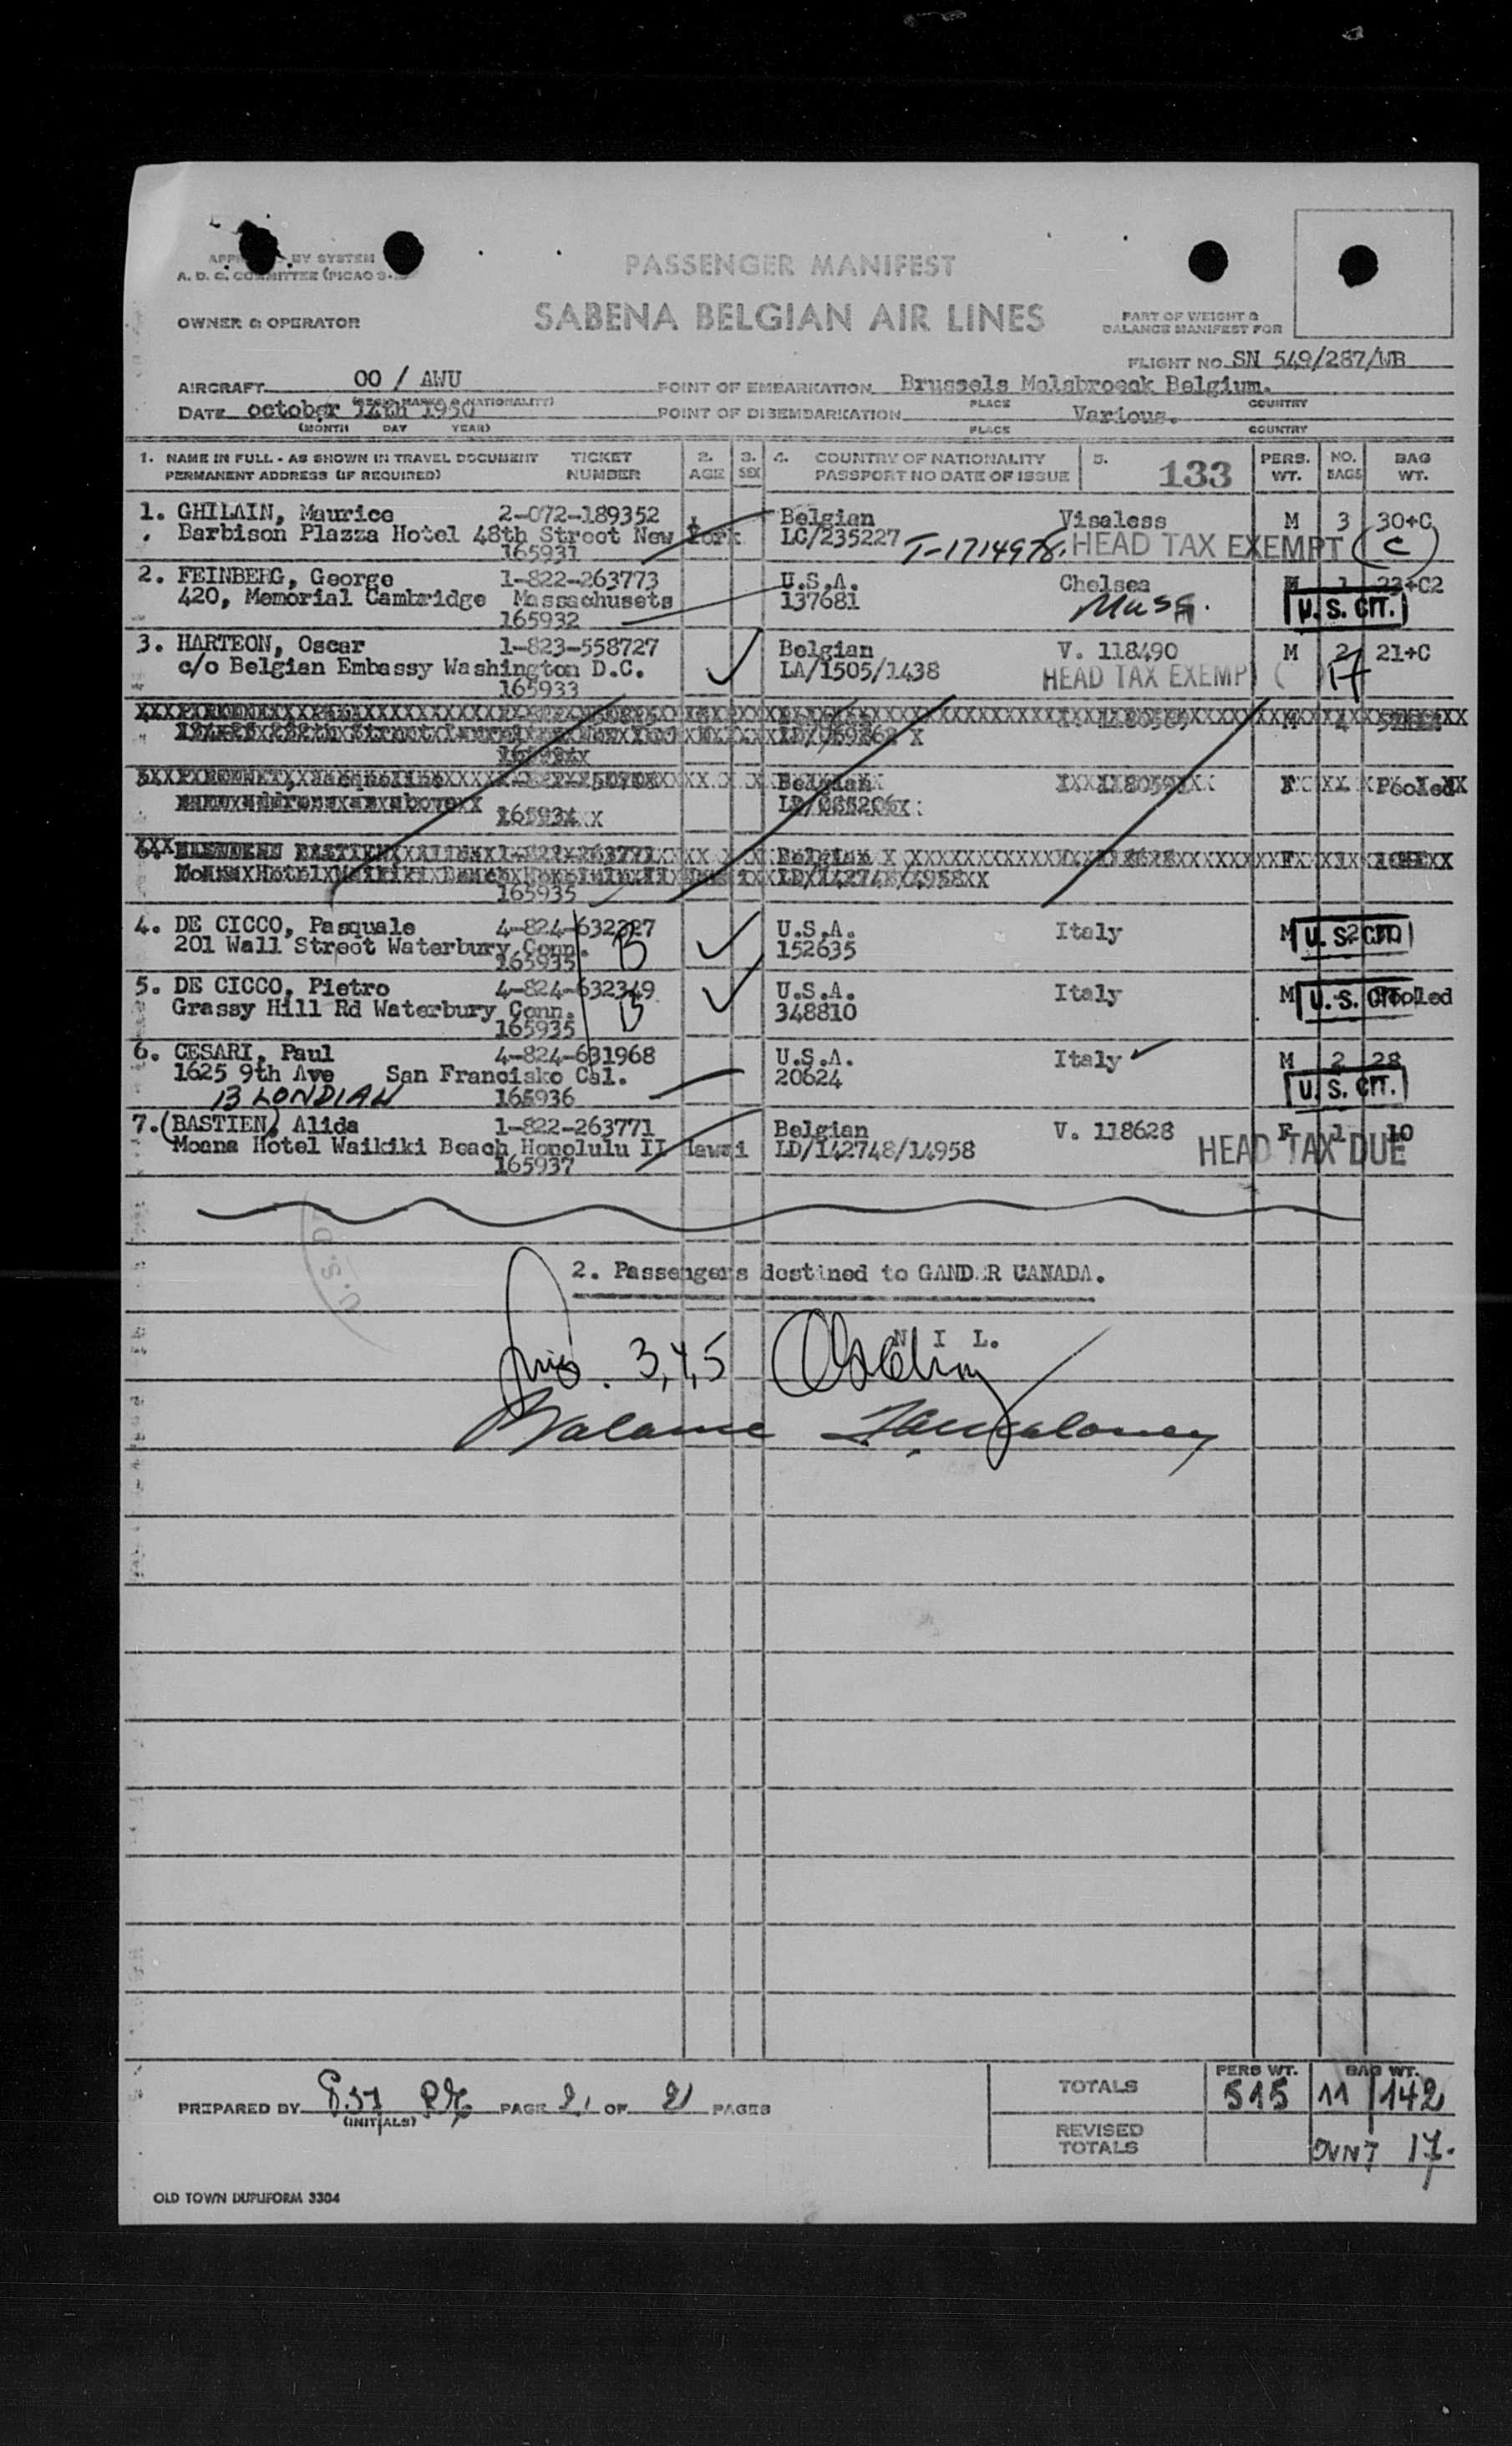 BY SYSTEM
A. D. C. COMMITTEE (PICAO 9-
PASSENGER MANIFEST
OWNER & OPERATOR
SABENA BELGIAN AIR LINES
PART OF WEIGHT &
BALANCE MANIFEST FOR
FLIGHT NO. SN 549/287/WB
AIRCRAFT OO / AWU
POINT OF EMBARKATION Brussels Melsbroeck Belgium.
DATE october 14th 1950
(MONTH DAY YEAR)
PLACE COUNTRY
POINT OF DISEMBARKATION Various.
PLACE COUNTRY
1. NAME IN FULL - AS SHOWN IN TRAVEL DOCUMENT TICKET 2. 3. 4. COUNTRY OF NATIONALITY 5. 133 PERS. NO. BAG
PERMANENT ADDRESS (IF REQUIRED) NUMBER AGE SEX PASSPORT NO DATE OF ISSUE WT. BAGS WT.
1. GHILAIN, Maurice 2-072-189352 Belgian Visaless M 3 30+C
Barbison Plazza Hotel 48th Street New York LC/235227 T-1714978. HEAD TAX EXEMPT (C)
165931
2. FEINBERG, George 1-822-263773 U.S.A. Chelsea M 1 23+C2
420, Memorial Cambridge Massachusets 137681 Mass. U.S. CIT.
165932
3. HARTEON, Oscar 1-823-558727 Belgian V. 118490 M 2 21+C
c/o Belgian Embassy Washington D.C. LA/1505/1438 HEAD TAX EXEMP
165933
Belgian F Pooled
165934
BASTIEN 1-822-263771 Belgian F
165935
4. DE CICCO, Pasquale 4-824-632327 U.S.A. Italy M U.S. CIT.
201 Wall Street Waterbury Conn. B 152635
165935
5. DE CICCO, Pietro 4-824-632349 U.S.A. Italy M U.S. CIT. Pooled
Grassy Hill Rd Waterbury Conn. B 348810
165935
6. CESARI, Paul 4-824-631968 U.S.A. Italy M 2 28
1625 9th Ave San Francisko Cal. 20624 U.S. CIT.
BLONDIAU 165936
7. (BASTIEN) Alida 1-822-263771 Belgian V. 118628 F 1 10
Moana Hotel Waikiki Beach Honolulu II Hawai LD/142748/14958 HEAD TAX DUE
165937
2. Passengers destined to GANDER CANADA.
N I L.
3,4,5
Balance
TOTALS PERS WT. 515 BAG WT. 11 142
PREPARED BY PAGE 2 OF 2 PAGES
(INITIALS)
REVISED
TOTALS OVNT 17.
OLD TOWN DUPLIFORM 3304